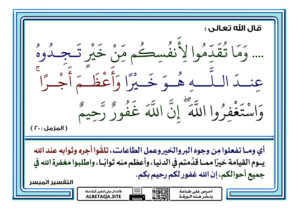 قال الله تعالى :
.... وَمَا تُقَدِّمُوا لِأَنفُسِكُم مِّنْ خَيْرٍ تَجِدُوهُ
عِندَ اللَّهِ هُوَ خَيْرًا وَأَعْظَمَ أَجْرًا ۚ
وَاسْتَغْفِرُوا اللَّهَ ۖ إِنَّ اللَّهَ غَفُورٌ رَّحِيمٌ
( المزمل : ٢٠ )
أي وما تفعلوا من وجوه البر والخير وعمل الطاعات ، تلقَوا أجره وثوابه عند الله
يوم القيامة خيرًا مما قدَّمتم في الدنيا ، وأعظم منه ثوابًا ، واطلبوا مغفرة الله في
جميع أحوالكم، إن الله غفور لكم رحيم بكم.
التفسير الميسر
ALBETAQA.SITE